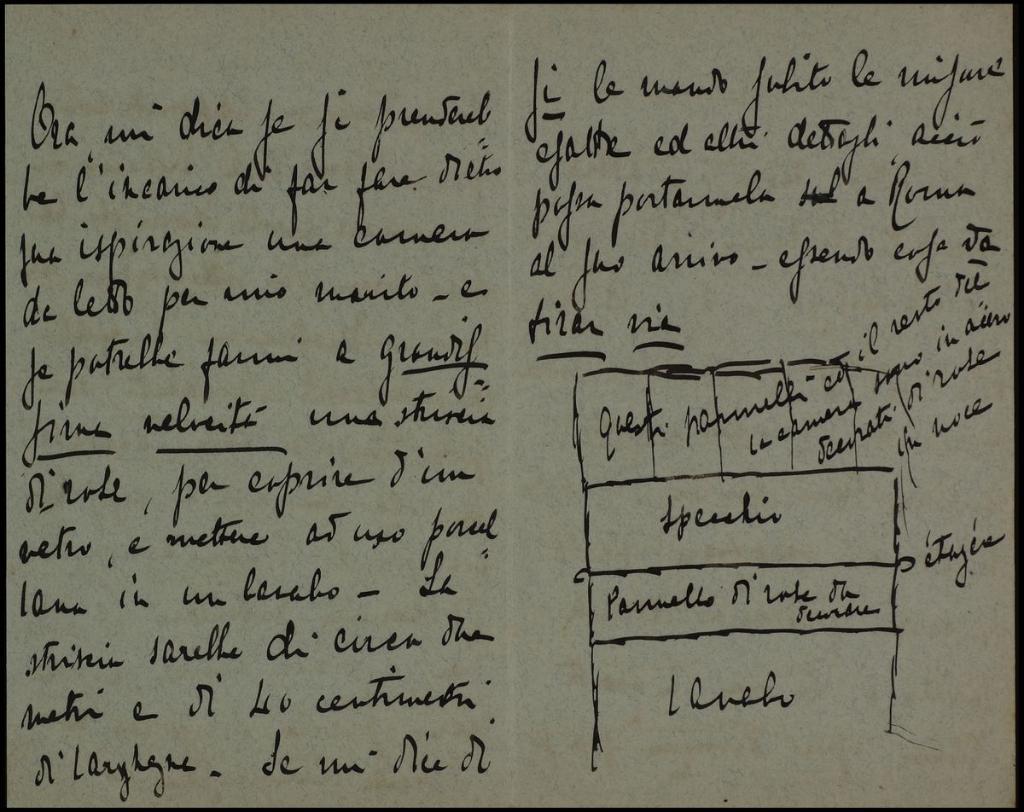 Ora, mi dica se si prendereb=
be l'incarico di far fare dietro
sua ispirazione una camera
da letto per mio marito - e
se potrebbe farmi a grandis=
sima velocità una striscia
di rose, per coprire d'un
vetro, e mettere ad uso porcel=
lana in un lavabo - La
striscia sarebbe di circa due
metri e di 40 centimetri
di larghezza. Se mi dice di
si le mando subito le misure
esatte ed altri dettagli, acciò
possa portarmela a Roma
al suo arrivo - essendo cosa da
tirar via
Questi pannelli ed il resto del
la camera sono in acero
decorati di rose
in noce
specchio
étagère
Pannello di rose da
decorare
lavabo